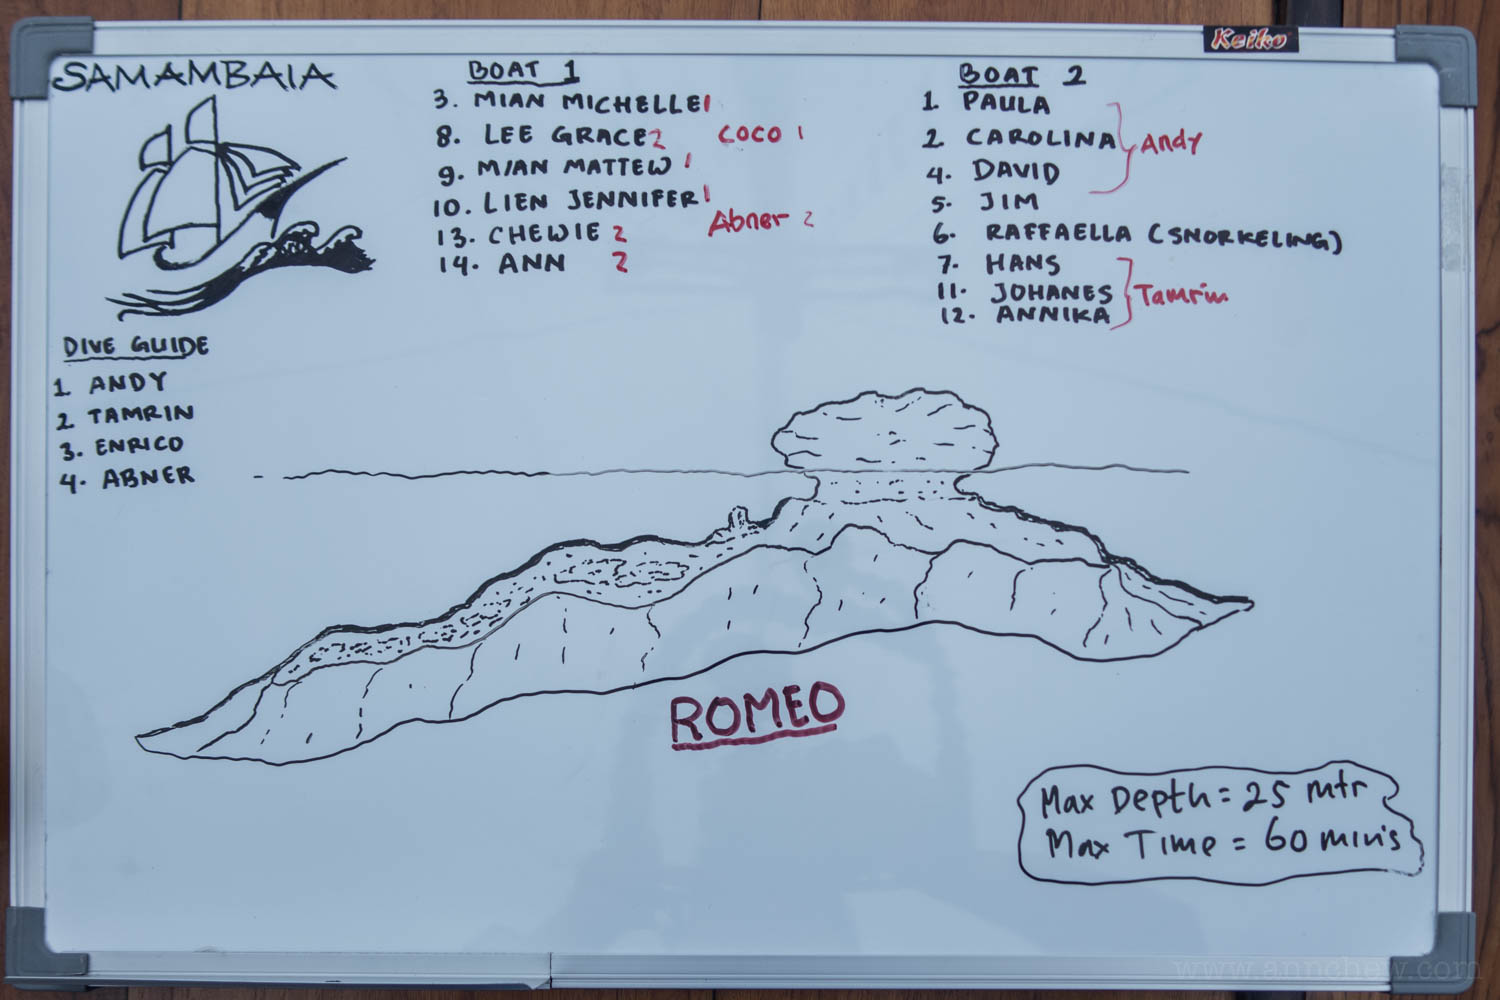 Keiko
SAMAMBAIA
BOAT 1
3. MIAN MICHELLE 1
8. LEE GRACE 2 COCO 1
9. MIAN MATTEW 1
10. LIEN JENNIFER 1
Abner 2
13. CHEWIE 2
14. ANN 2
BOAT 2
1. PAULA
2 CAROLINA
4. DAVID
Andy
5. JIM
6. RAFFAELLA (SNORKELING)
7. HANS
11. JOHANES
12. ANNIKA
Tamrin
DIVE GUIDE
1 ANDY
2 TAMRIN
3. ENRICO
4. ABNER
ROMEO
Max Depth = 25 mtr
Max Time = 60 min's
www.annchew.com